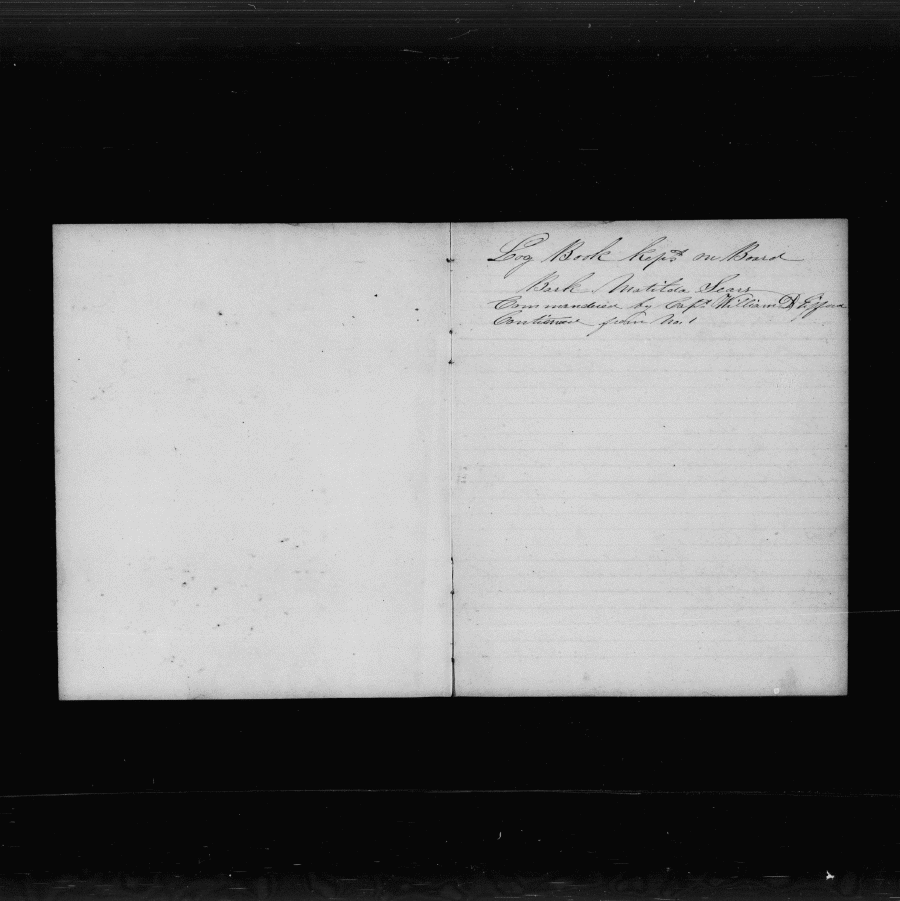 Log Book kept on Board
Bark Matilda Sears
Commanded by Capt William D Gifford
Continued from No. 1